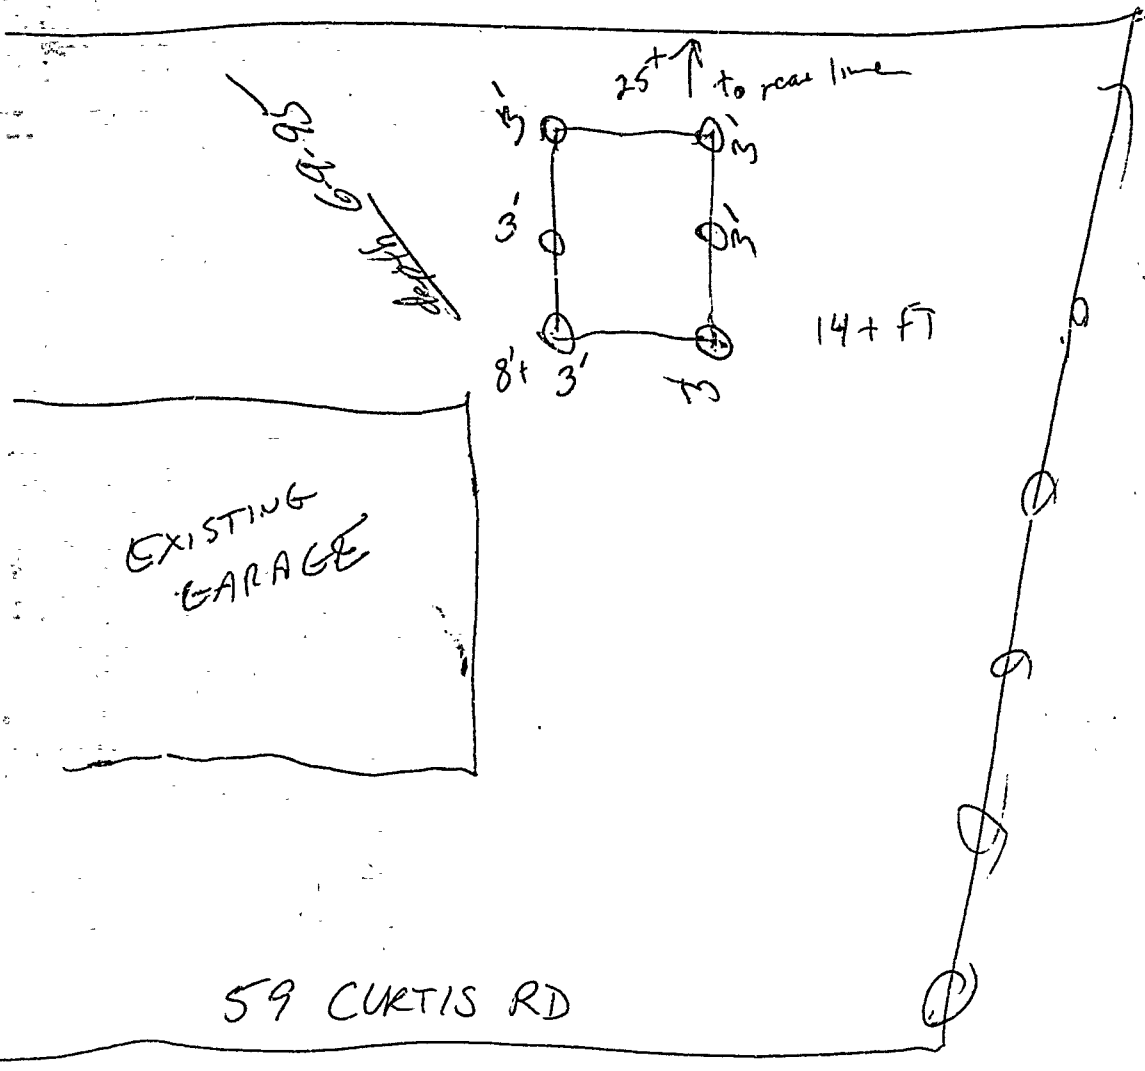 25+ to rear line
3'
3'
3'
3'
8'+ 3'
3'
14+ FT
depth 6-9-95
EXISTING
GARAGE
59 CURTIS RD